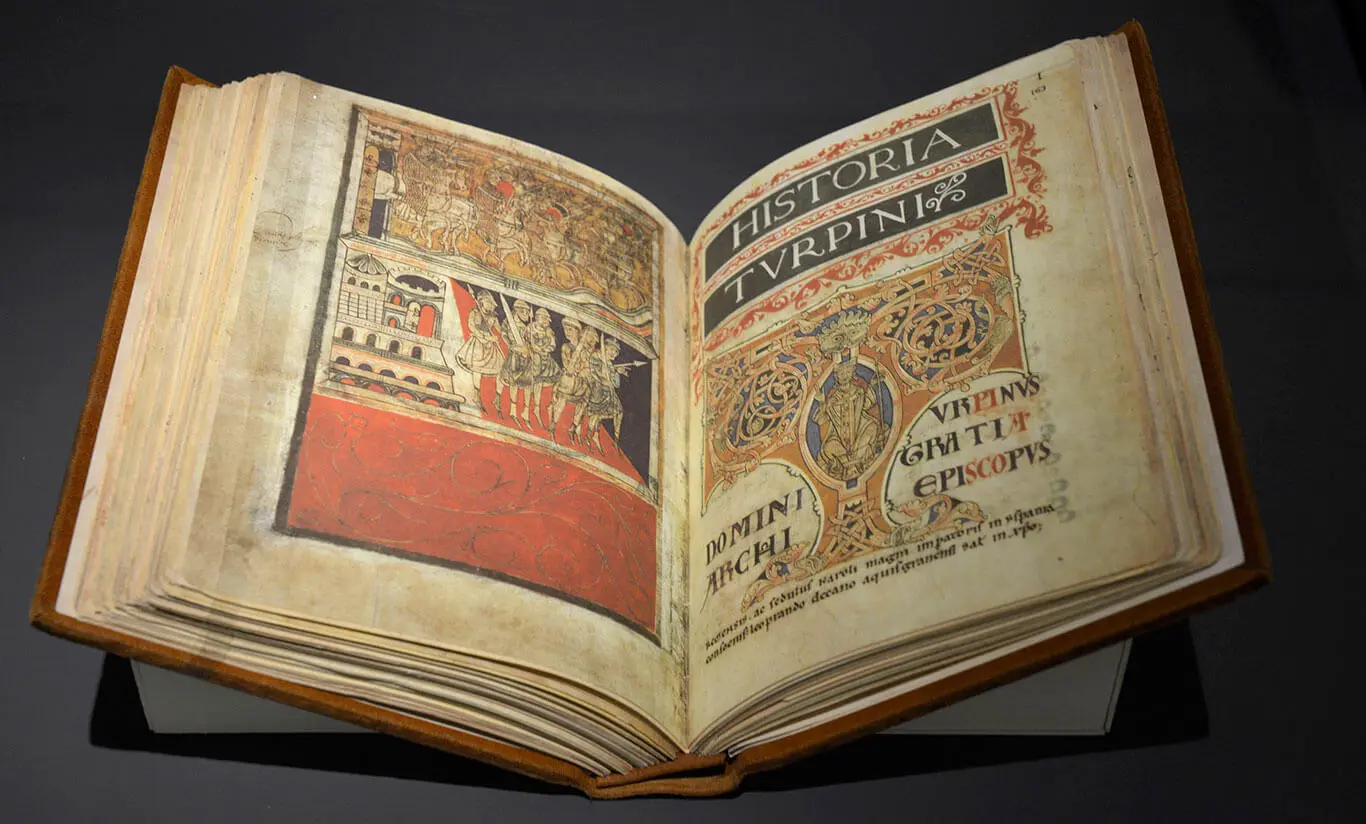 I
163
HISTORIA
TVRPINI
VRPINVS
GRATIA
EPISCOPVS
DOMINI
ARCHI
ac sedulus karoli magni imparoris in yspania
leoprando decano aquisgranensi sat in xpo;